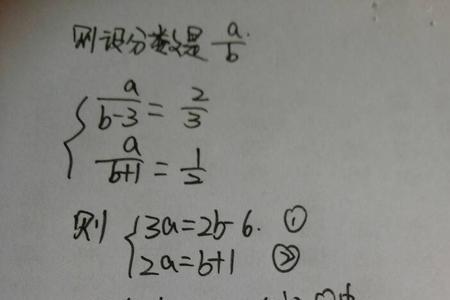 则设分数是 a/b.
{ a/(b-3) = 2/3
a/(b+1) = 1/2
则 { 3a=2b-6. ①
2a=b+1 ②